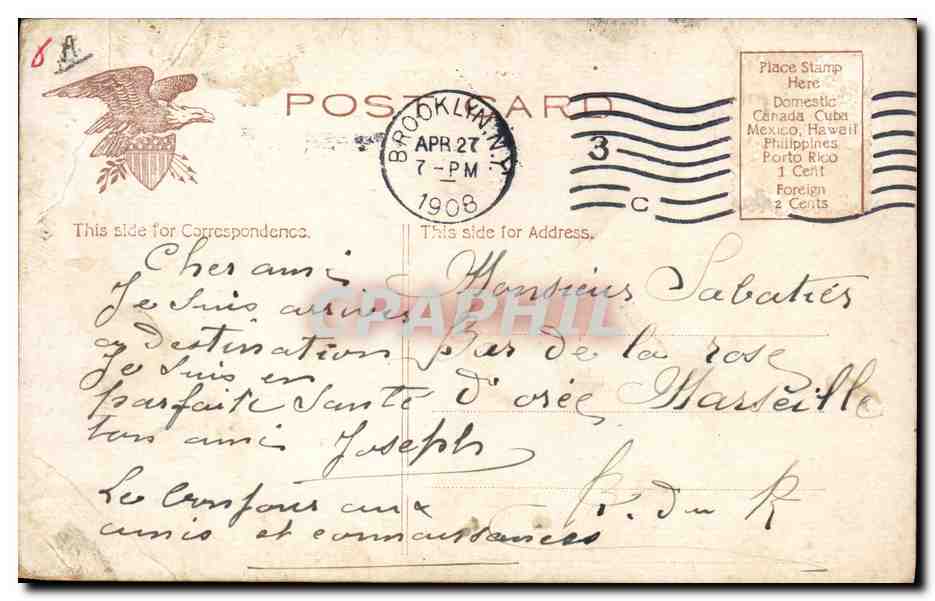 6 A
POST CARD
BROOKLYN, N.Y.
APR 27
7-PM
1908
3
C
Place Stamp
Here
Domestic
Canada Cuba
Mexico, Hawaii
Philippines
Porto Rico
1 Cent
Foreign
2 Cents
This side for Correspondence.
Cher ami
Je suis arrives
a Destination
Je suis en
parfaite santé
ton ami Joseph
Le bonjour aux
amis et connaissances
This side for Address.
Monsieur Sabatier
Bar de la rose
D'orée Marseille
R. du R
CPAPHIL